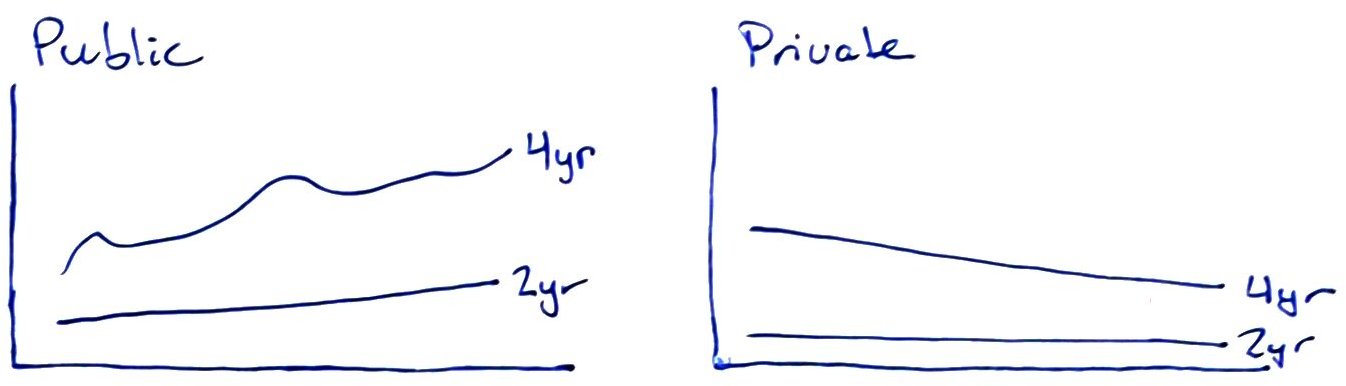 Public
4yr
2yr
Private
4yr
2yr